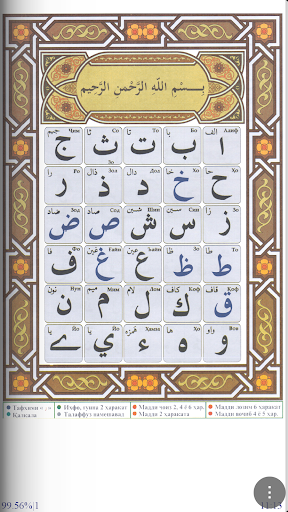 بِسْمِ اللّٰهِ الرَّحْمٰنِ الرَّحِيْمِ
الف Алиф با Бо تا То ثا Со جیم Ҷим
ا ب ت ث ج
حا Ҳо خا Хо دال Дол ذال Зол را Ро
ح خ د ذ ر
زا Зо سین Син شین Шин صاد Сод صاد Зод
ز س ش ص ض
طا То ظا Зо عین Ъайн غین Ғайн فا Фо
ط ظ ع غ ف
قاف Қоф كاف Коф لام Лом میم Мим نون Нун
ق ك ل م ن
واو Вов ها Ҳо همزه Ҳамза یا Йо یا Йо
و ه ء ي ے
Тафхими « » Ихфо, ғунна 2 ҳаракат Мадди ҷоиз 2, 4 ё 6 ҳар. Мадди лозим 6 ҳаракат
Қалқала Талаффуз намешавад Мадди 2 ҳараката Мадди воҷиб 4 ё 5 ҳар.
99.56%|1 11:13